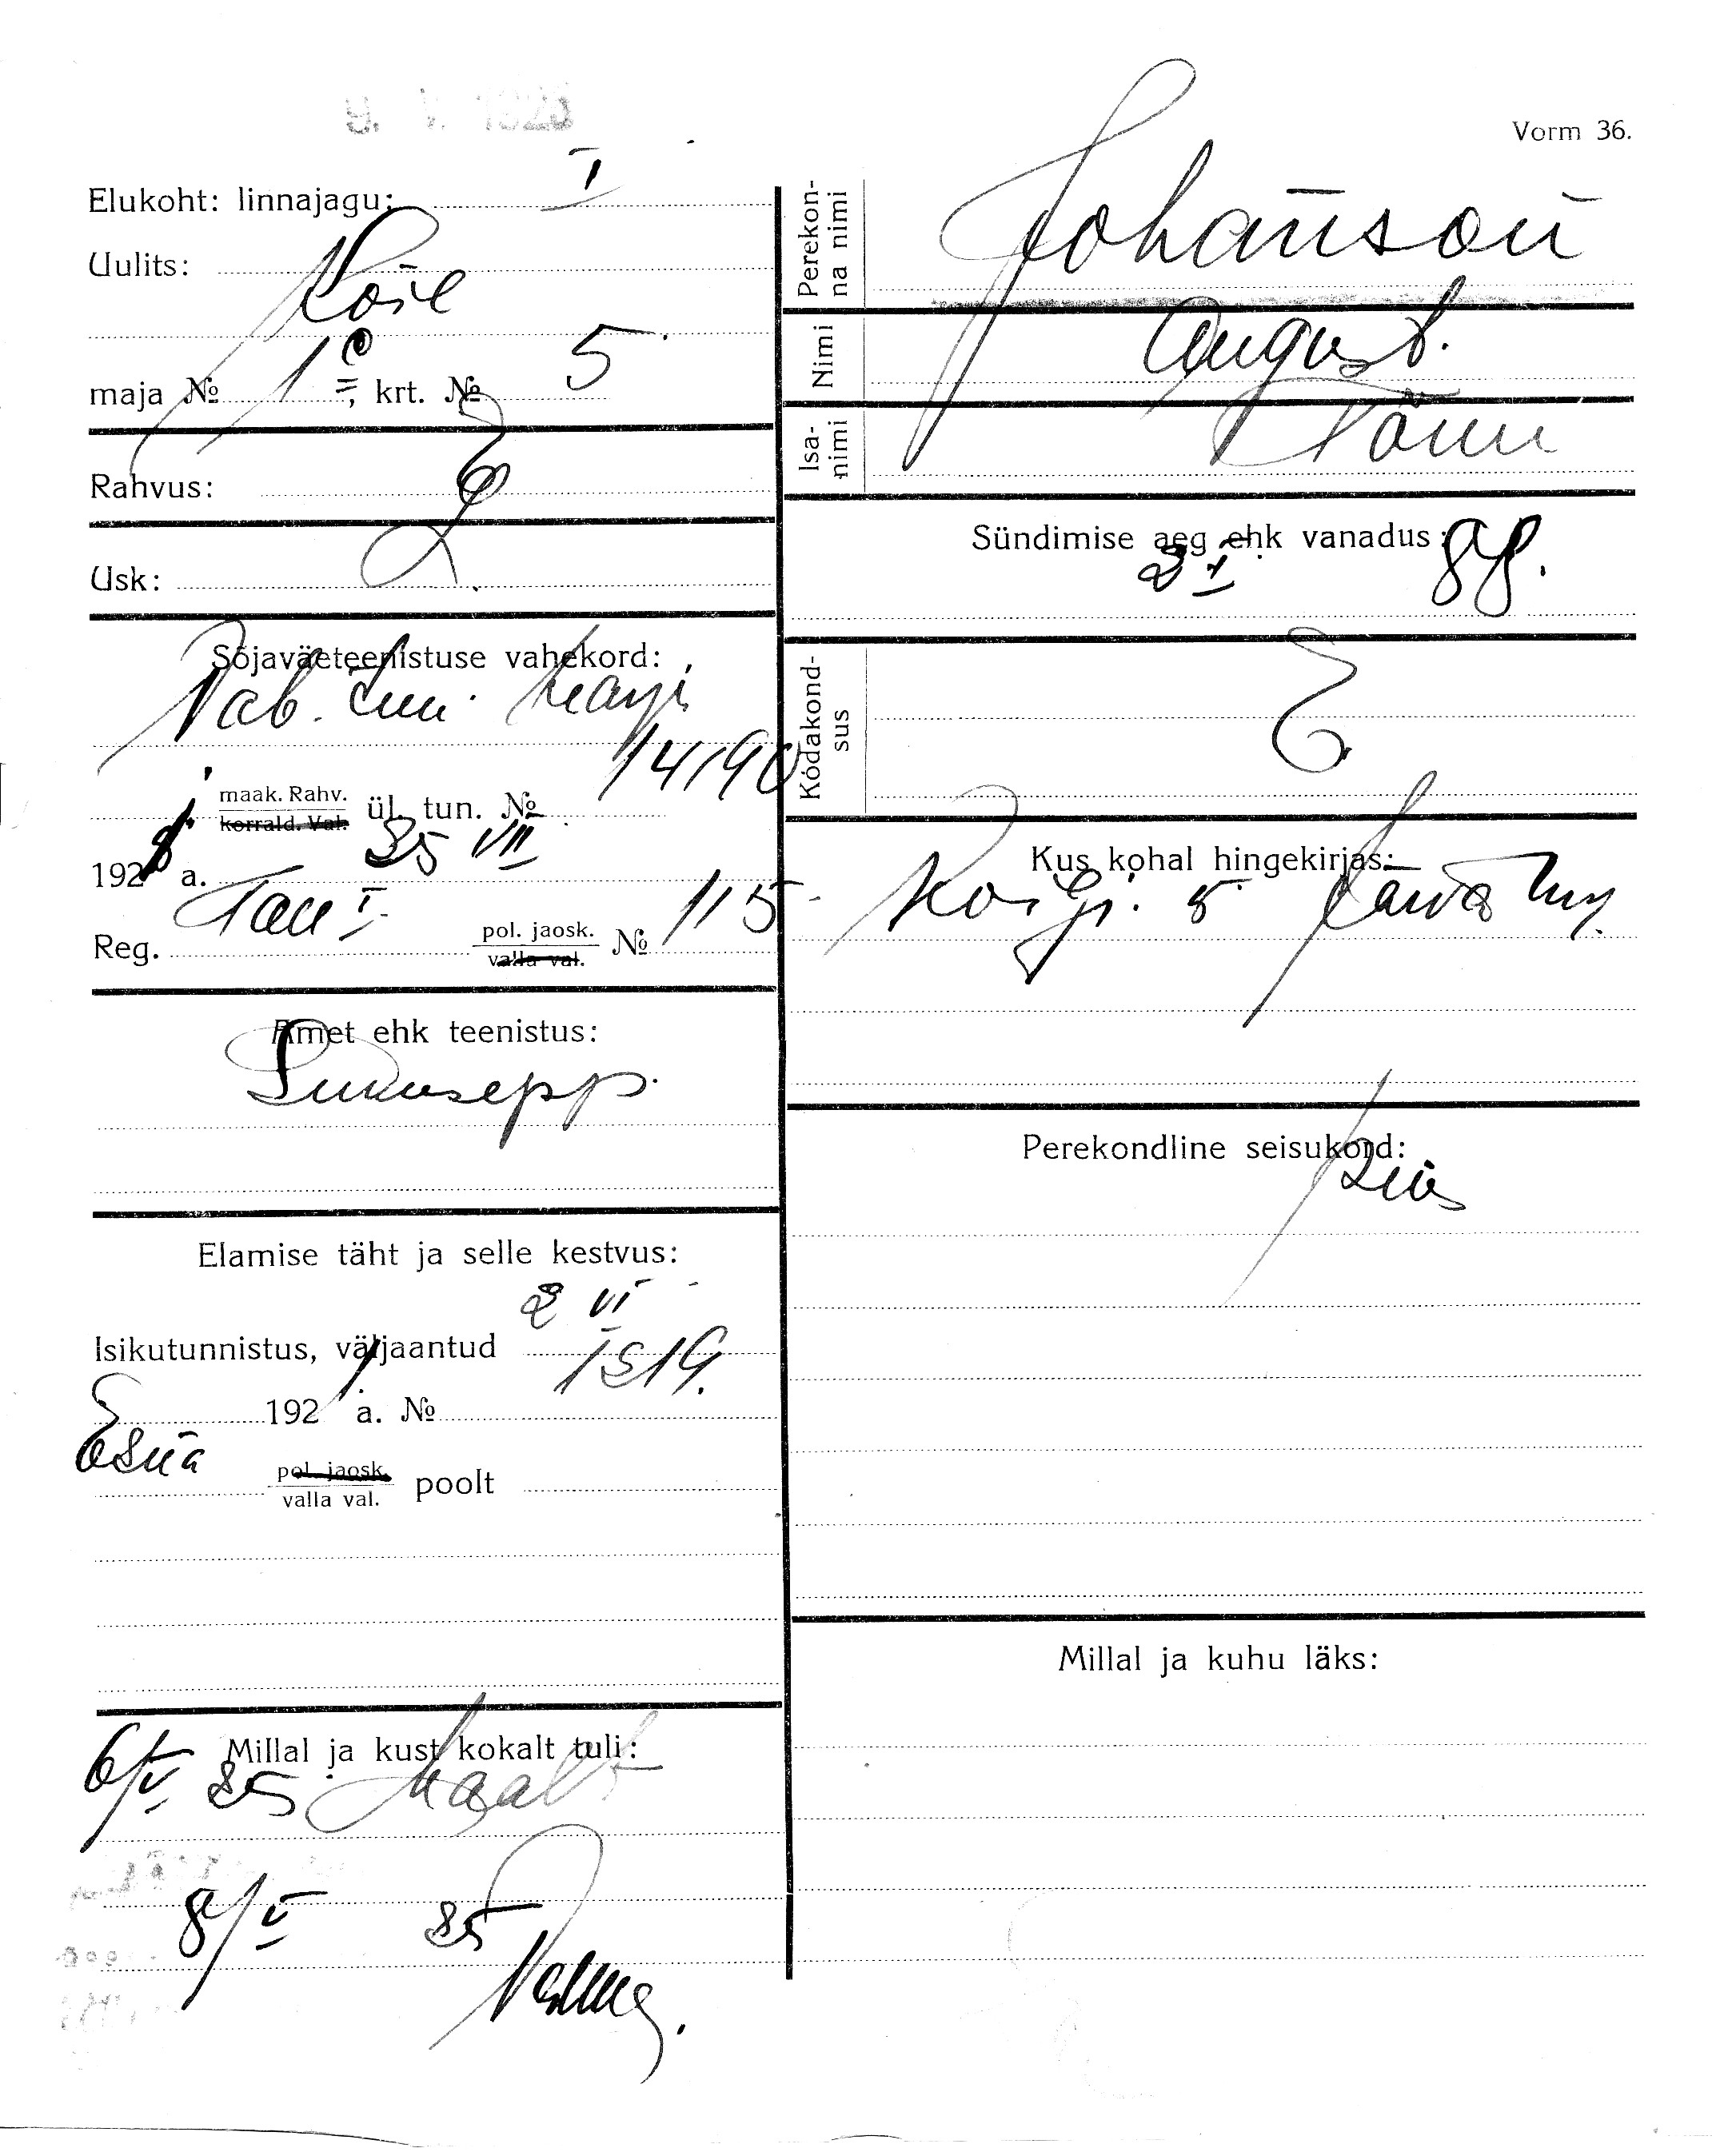 Vorm 36.
Elukoht: linnajagu: I
Uulits:
Koic
maja № 1 c =, krt. № 5
Rahvus: E
Usk: L.
Sõjaväeteenistuse vahekord:
Vab. Harju
14190
maak. Rahv.
korrald. Val. ül. tun. №
25 VII
192 a.
Reg. Tall I pol. jaosk.
valla val. № 115
Amet ehk teenistus:
Lukusepp.
Elamise täht ja selle kestvus:
2 VI
Isikutunnistus, väljaantud
1214.
192 1 a. №
Esna
pol. jaosk.
valla val. poolt
Millal ja kust kokalt tuli:
6/V 25 Maalt
8/V 25
Perekon-
na nimi
Johanson
Nimi
August.
Isa-
nimi
Tõnu
Sündimise aeg ehk vanadus:
2 I 88.
Kodakond-
sus
E.
Kus kohal hingekirjas:
Koigi v. Järva
Perekondline seisukord:
Millal ja kuhu läks: